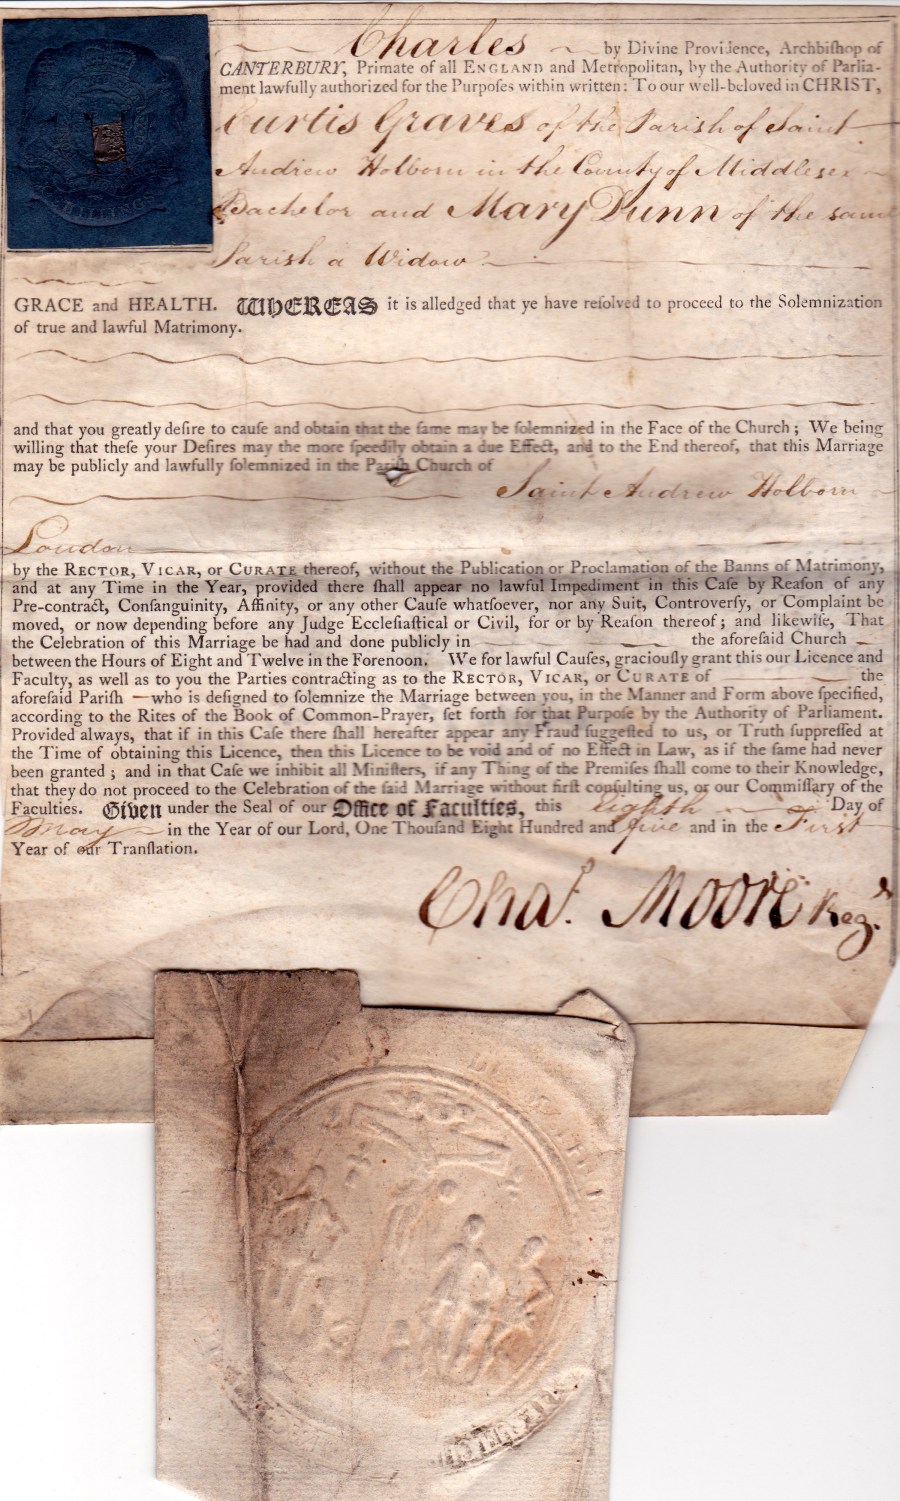 Charles by Divine Providence, Archbiſhop of
CANTERBURY, Primate of all ENGLAND and Metropolitan, by the Authority of Parlia-
ment lawfully authorized for the Purpoſes within written: To our well-beloved in CHRIST,
Curtis Graves of the Parish of Saint
Andrew Holborn in the County of Middlesex
Bachelor and Mary Dunn of the same
Parish a Widow
GRACE and HEALTH. WHEREAS it is alledged that ye have reſolved to proceed to the Solemnization
of true and lawful Matrimony.
and that you greatly deſire to cauſe and obtain that the ſame may be ſolemnized in the Face of the Church; We being
willing that theſe your Deſires may the more ſpeedily obtain a due Effect, and to the End thereof, that this Marriage
may be publicly and lawfully ſolemnized in the Pariſh Church of
Saint Andrew Holborn
London
by the RECTOR, VICAR, or CURATE thereof, without the Publication or Proclamation of the Banns of Matrimony,
and at any Time in the Year, provided there ſhall appear no lawful Impediment in this Caſe by Reaſon of any
Pre-contract, Conſanguinity, Affinity, or any other Cauſe whatſoever, nor any Suit, Controverſy, or Complaint be
moved, or now depending before any Judge Eccleſiaſtical or Civil, for or by Reaſon thereof; and likewiſe, That
the Celebration of this Marriage be had and done publicly in the aforeſaid Church
between the Hours of Eight and Twelve in the Forenoon. We for lawful Cauſes, graciouſly grant this our Licence and
Faculty, as well as to you the Parties contracting as to the RECTOR, VICAR, or CURATE of the
aforeſaid Pariſh who is deſigned to ſolemnize the Marriage between you, in the Manner and Form above ſpecified,
according to the Rites of the Book of Common-Prayer, ſet forth for that Purpoſe by the Authority of Parliament.
Provided always, that if in this Caſe there ſhall hereafter appear any Fraud ſuggeſted to us, or Truth ſuppreſſed at
the Time of obtaining this Licence, then this Licence to be void and of no Effect in Law, as if the ſame had never
been granted; and in that Caſe we inhibit all Miniſters, if any Thing of the Premiſes ſhall come to their Knowledge,
that they do not proceed to the Celebration of the ſaid Marriage without firſt conſulting us, or our Commiſſary of the
Faculties. Given under the Seal of our Office of Faculties, this Eighth Day of
May in the Year of our Lord, One Thouſand Eight Hundred and five and in the First
Year of our Tranſlation.
Chas. Moore Regr.